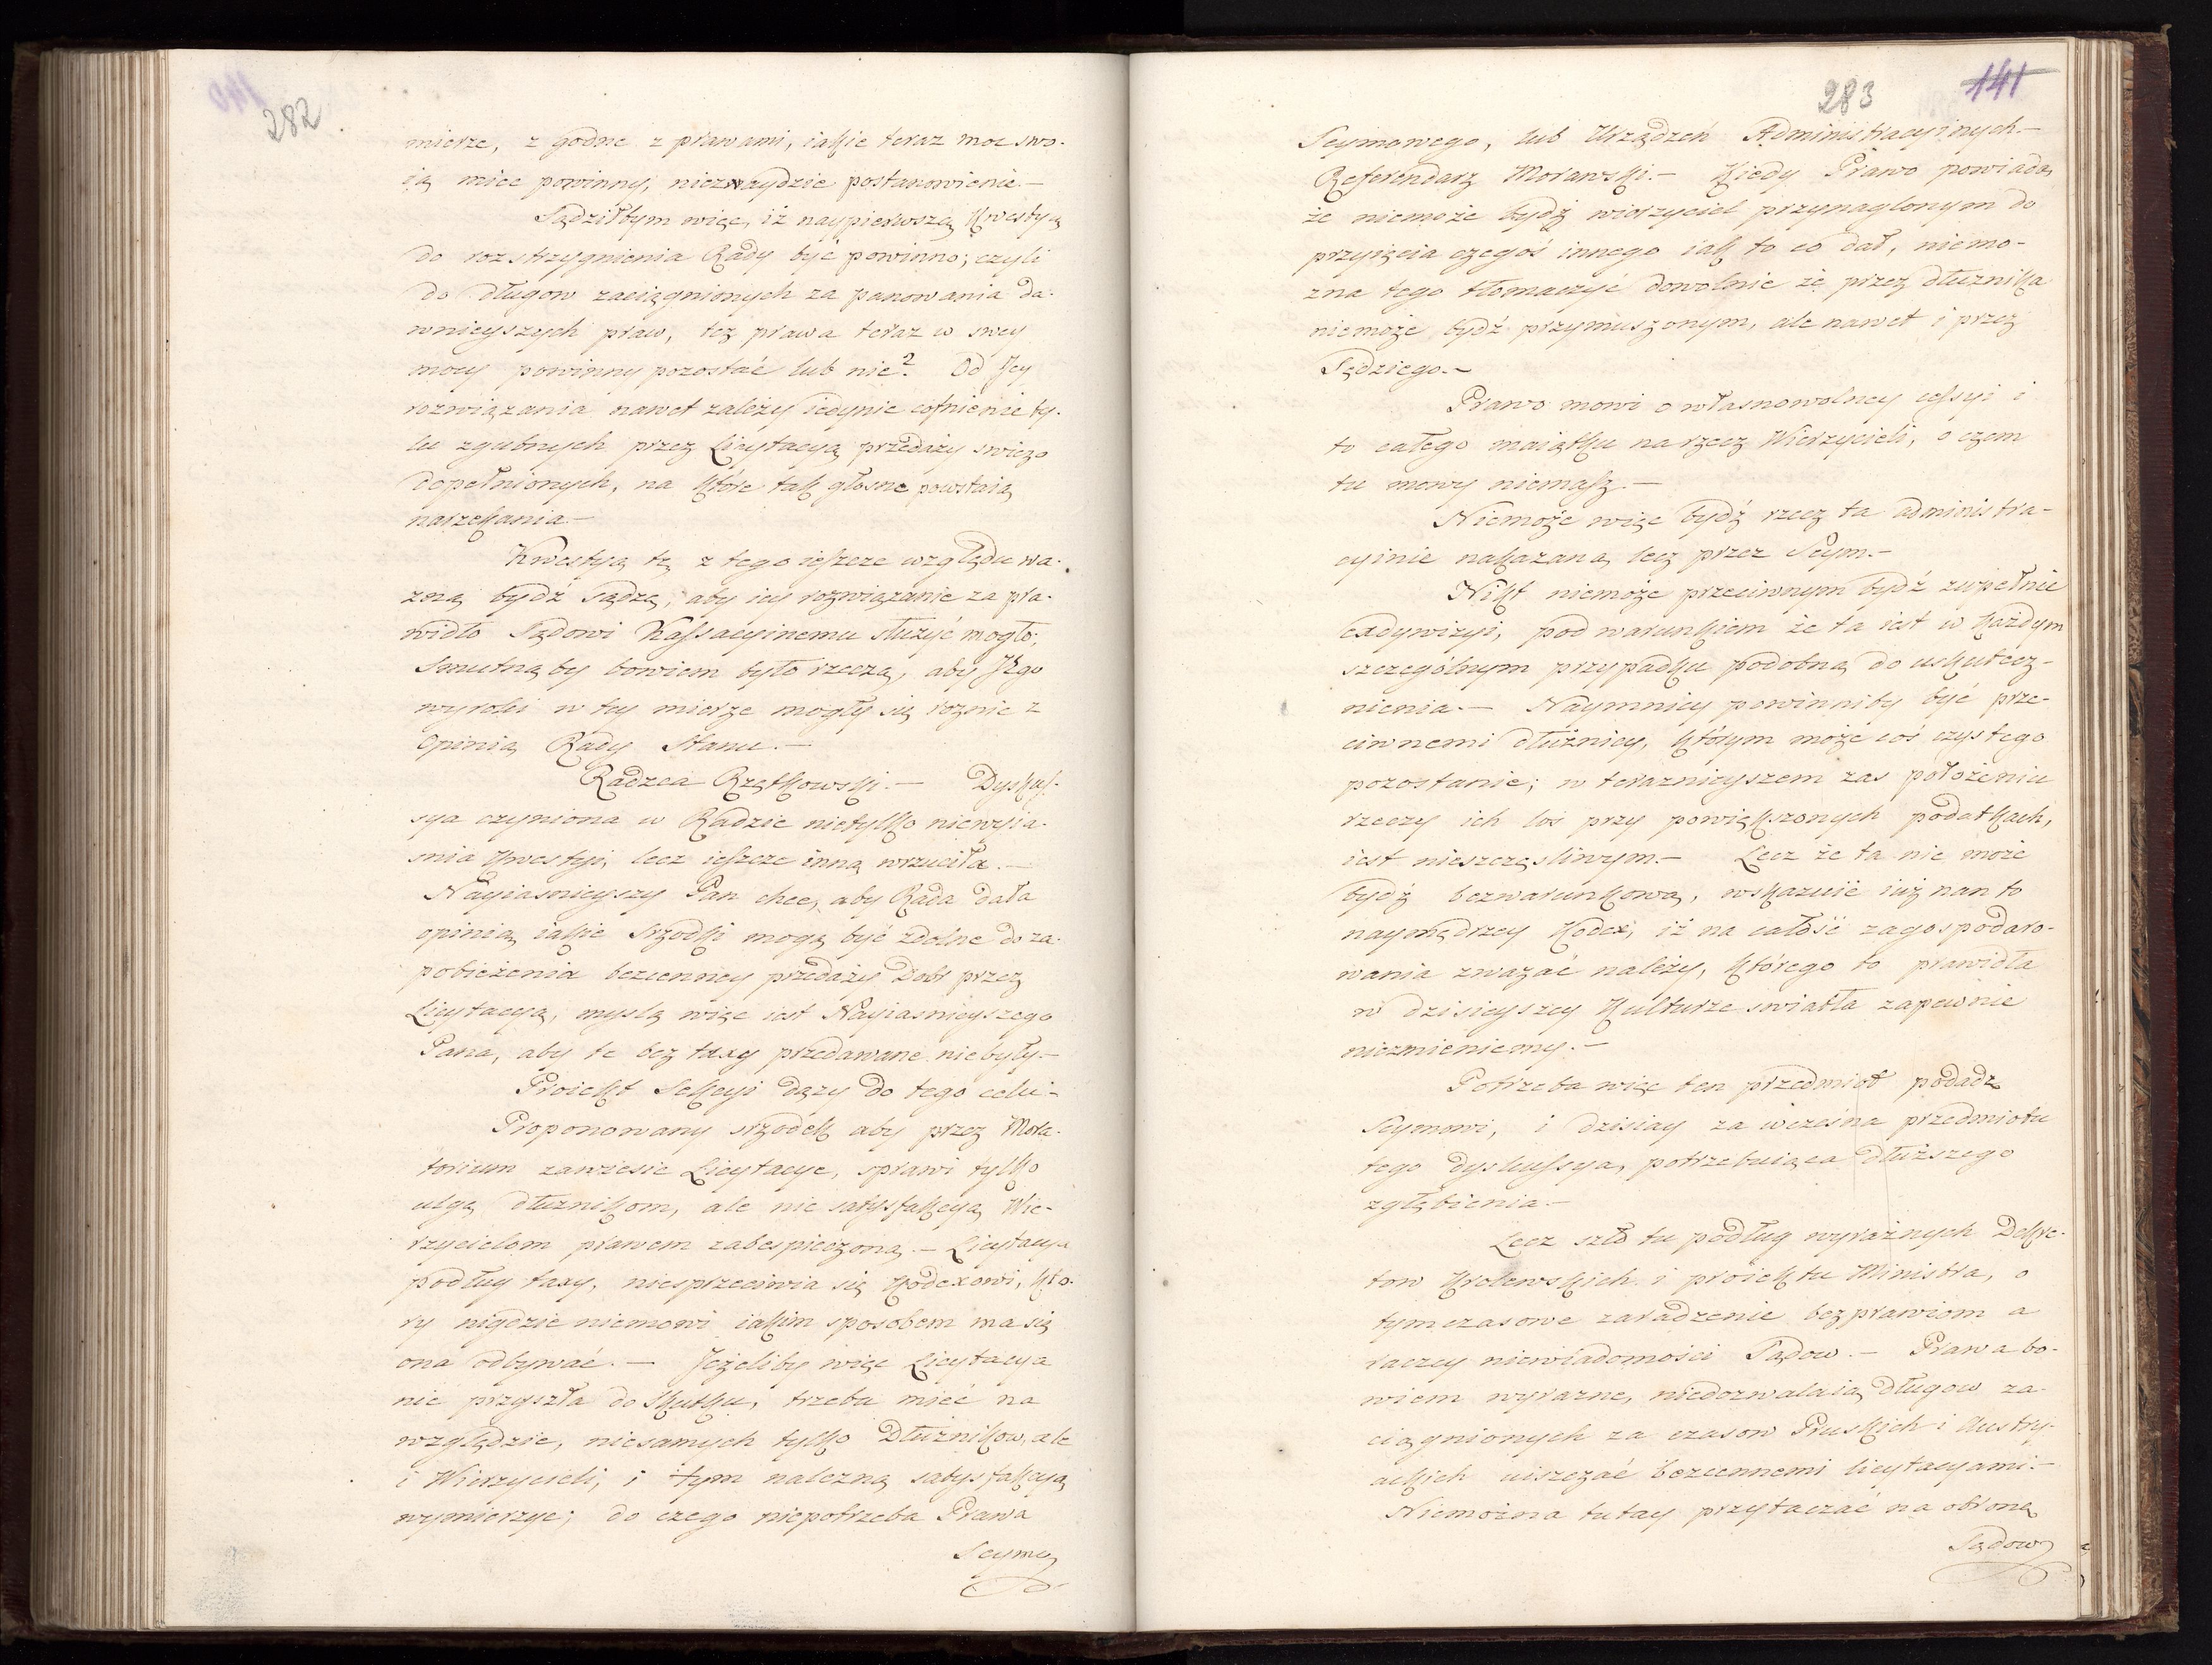 282
mierze, z godne z prawami, iakie teraz moc swo-
ią miec powinny, nieznaydzie postanowienie.—
Sądziłbym więc, iż naypierwszą Kwestyą
do rozstrzygnienia Rady być powinno; czyli
do długow zaciągnionych za panowania da-
wnieyszych praw, też prawa teraz w swey
mocy powinny pozostać lub nie? Od Jey
rozwiązania nawet zależy iedynie cofnienie ty-
lu zgubnych przez Licytacyą przedaży swiezo
dopełnionych, na które tak głosne powstaią
narzekania.—
Kwestyą tę z tego ieszcze względu wa-
zną bydź sądzę, aby iey rozwiązanie za pra-
widło Sądowi Kassacyinemu służyć mogło;
Smutną by bowiem było rzeczą, aby Jego
wyroki w tey mierze mogły się roznic z
Opinią Rady Stanu.—
Radzca Rzętkowski.— Dyskus-
sya czyniona w Radzie nietylko niewyia-
snia Kwestyi, lecz ieszcze inną wrzuciła.—
Nayiasnieyszy Pan chce, aby Rada dała
opinią iakie Srzodki mogą być zdolne do za-
pobieżenia bezcenney przedaży Dobr przez
Licytacyą, myslą więc iest Nayiasnieyszego
Pana, aby te bez taxy przedawane niebyły.—
Proiekt Sekcyi dązy do tego celu.—
Proponowany srzodek aby przez Mora-
torium zawiesic Licytacye, sprawi tylko
ulgę dłuznikom, ale nie satysfakcyą Wie-
rzycielom prawem zabespieczoną.— Licytacya
podług taxy, niesprzeciwia się Kodexowi, kto-
ry nigdzie niemowi iakim sposobem ma się
ona odbywać.— Jeżeliby więc Licytacya
nie przyszła do skutku, trzeba mieć na
względzie, niesamych tylko Dłuznikow, ale
i Wierzycieli, i tym nalezną satysfakcyą
wymierzyc; do czego niepotrzeba Prawa
Seymo
283 141
Seymowego, lub Urządzeń Administracyinych.—
Referendarz Morawski.— Kiedy Prawo powiada,
że niemoże bydź wierzyciel przynaglonym do
przyięcia czegoś innego iak to co dał, niemo-
zna tego tłomaczyć dowolnie że przez dłuznika
niemoże bydź przymuszonym, ale nawet i przez
Sędziego.—
Prawo mowi o własnowolney cessyi i
to całego maiątku na rzecz Wierzycieli, o czem
tu mowy niemasz.—
Niemoże więc bydź rzecz ta administra-
cyinie nakazaną, lecz przez Seym.—
Nikt niemoże przeciwnym bydź zupełnie
exdywizyi, pod warunkiem że ta iest w każdym
szczególnym przypadku podobną do uskutecz-
nienia.— Naymniey powinniby być prze-
ciwnemi dłużnicy, którym może coś czystego
pozostanie; w teraznieyszem zas położeniu
rzeczy ich los przy powiększonych podatkach,
iest nieszczęsliwym.— Lecz że ta nie może
bydź bezwarunkową, wskazuie iuż nam to
naymędrzey Kodex, iż na całość zagospodaro-
wania zważać należy, którego to prawidła
w dzisieyszey Kulturze swiatła zapewnie
niezmieniemy.—
Potrzeba więc ten przedmiot podadz
Seymowi, i dzisiay za wczesna przedmiotu
tego dyskussya, potrzebuiąca dłuższego
zgłębienia.—
Lecz szło tu podług wyraźnych Dekre-
tow Krolewskich i proiektu Ministra, o
tymczasowe zaradzenie bezprawiom a
raczey niewiadomości Sądow.— Prawa bo-
wiem wyrazne, niedozwalaią długow za-
ciągnionych za czasow Pruskich i Austry-
ackich uiszczać bezcennemi licytacyami.—
Niemożna tutay przytaczać na obronę
Sądow